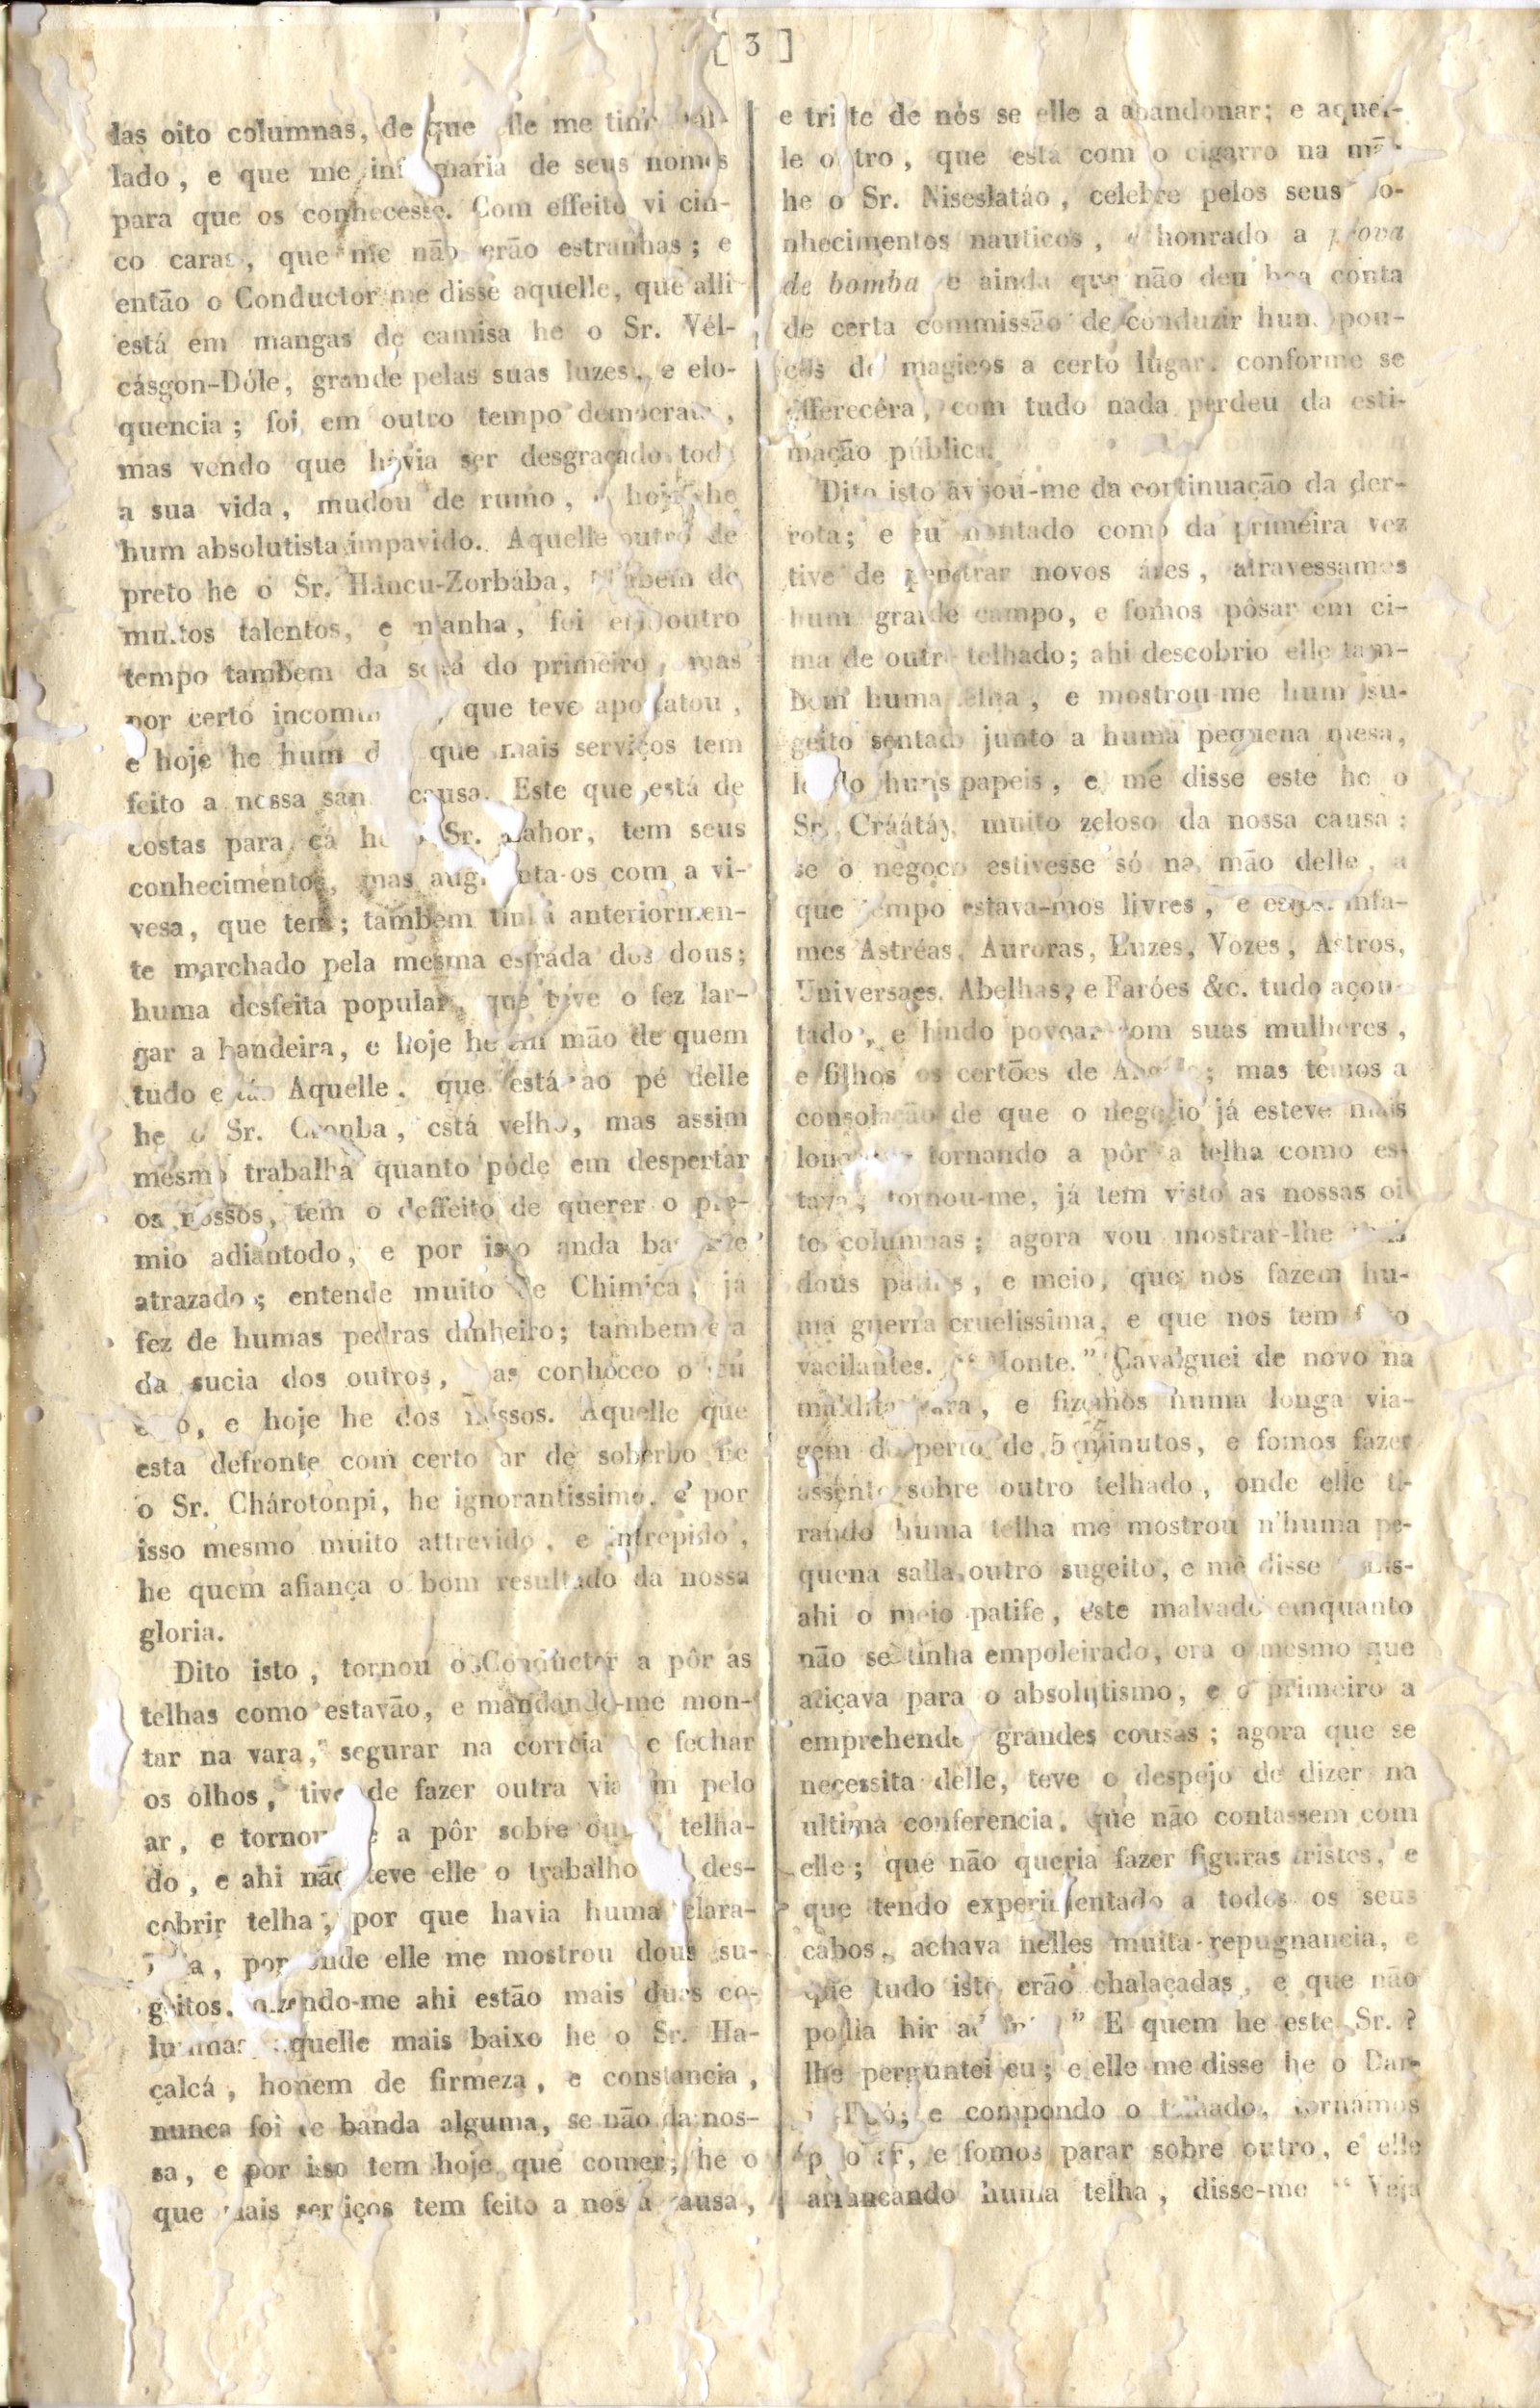 [ 3 ]
las oito columnas, de que elle me tin
lado, e que me maria de seus nomes
para que os conhecesse. Com effeito vi cin-
co caras, que me não erão estranhas; e
então o Conductor me disse aquelle, que alli
está em mangas de camisa he o Sr. Vél-
cásgon-Dóle, grande pelas suas luzes, e elo-
quencia; foi em outro tempo democrata,
mas vendo que havia ser desgraçado tod
a sua vida, mudou de rumo, e hoje he
hum absolutista impavido. Aquelle outro de
preto he o Sr. Hancu-Zorbába, tambem de
muitos talentos, e manha, foi em outro
tempo tambem da seita do primeiro, mas
por certo incom , que teve apostatou,
e hoje he hum d que mais serviços tem
feito a nossa san causa. Este que está de
costas para cá he Sr. ahor, tem seus
conhecimentos, mas aug nta-os com a vi-
vesa, que tem; tambem tinha anteriormen-
te marchado pela mesma estráda dos dous;
huma desfeita popular, que teve o fez lar-
gar a bandeira, e hoje he em mão de quem
tudo está. Aquelle, que está ao pé delle
he o Sr. Cronba, está velho, mas assim
mesmo trabalha quanto póde em despertar
os nossos, tem o deffeito de querer o pre-
mio adiantodo, e por isso anda ba
atrazado; entende muito de Chimica, já
fez de humas pedras dinheiro; tambem era
da sucia dos outros, mas conheceo o seu
e o, e hoje he dos nossos. Aquelle que
esta defronte com certo ar de soberbo he
o Sr. Chárotonpi, he ignorantissimo, e por
isso mesmo muito attrevido, e intrepido,
he quem afiança o bom resultado da nossa
gloria.
Dito isto, tornou o Conductor a pôr as
telhas como estavão, e mandando-me mon-
tar na vara, segurar na correia e fechar
os olhos, tive de fazer outra viagem pelo
ar, e tornou-me a pôr sobre outro telha-
do, e ahi não teve elle o trabalho de des-
cobrir telha, por que havia huma clara-
a, por onde elle me mostrou dous su-
geitos, dizendo-me ahi estão mais duas co-
lumnas, aquelle mais baixo he o Sr. Ha-
çalcá, homem de firmeza, e constancia,
nunca foi de banda alguma, se não da nos-
sa, e por isso tem hoje que comer; he o
que mais serviços tem feito a nossa causa,
e triste de nós se elle a abandonar; e aquel-
le outro, que está com o cigarro na mão
he o Sr. Niseslatáo, celebre pelos seus co-
nhecimentos nauticos, e honrado a prova
de bomba e ainda que não deu boa conta
de certa commissão de conduzir huns pou-
cos de magicos a certo lugar, conforme se
offerecêra, com tudo nada perdeu da esti-
mação pública.
Dito isto avisou-me da continuação da der-
rota; e eu montado como da primeira vez
tive de penetrar novos áres, atravessamos
hum grande campo, e fomos pôsar em ci-
ma de outro telhado; ahi descobrio elle tam-
bem huma telha, e mostrou-me hum su-
geito sentado junto a huma pequena mesa,
lendo huns papeis, e me disse este he o
Sr. Cráátáy, muito zeloso da nossa causa:
se o negocio estivesse só na mão delle, a
que tempo estava-mos livres, e esses infa-
mes Astréas, Auroras, Luzes, Vozes, Astros,
Universaes, Abelhas, e Faróes &c. tudo açou-
tado, e hindo povoar com suas mulheres,
e filhos os certões de Angola; mas temos a
consolação de que o negocio já esteve mais
longe tornando a pôr a telha como es-
tava, tornou-me, já tem visto as nossas oi-
to columnas; agora vou mostrar-lhe mais
dous patifes, e meio, que nos fazem hu-
ma guerra cruelissima, e que nos tem feito
vacilantes. “Monte.” Cavalguei de novo na
maldita vara, e fizemos huma longa via-
gem de perto de 5 minutos, e fomos fazer
assento sobre outro telhado, onde elle ti-
rando huma telha me mostrou n'huma pe-
quena salla outro sugeito, e me disse is-
ahi o meio patife, este malvado emquanto
não se tinha empoleirado, era o mesmo que
atiçava para o absolutismo, e o primeiro a
emprehender grandes cousas; agora que se
necessita delle, teve o despejo de dizer na
ultima conferencia, que não contassem com
elle; que não queria fazer figuras tristes, e
que tendo experimentado a todos os seus
cabos, achava nelles muita repugnancia, e
que tudo isto erão chalaçadas, e que não
podia hir a ” E quem he este Sr.?
lhe perguntei eu; e elle me disse he o Dar-
; e compondo o telhado, tornámos
o ar, e fomos parar sobre outro, e elle
arrancando huma telha, disse-me “ Veja